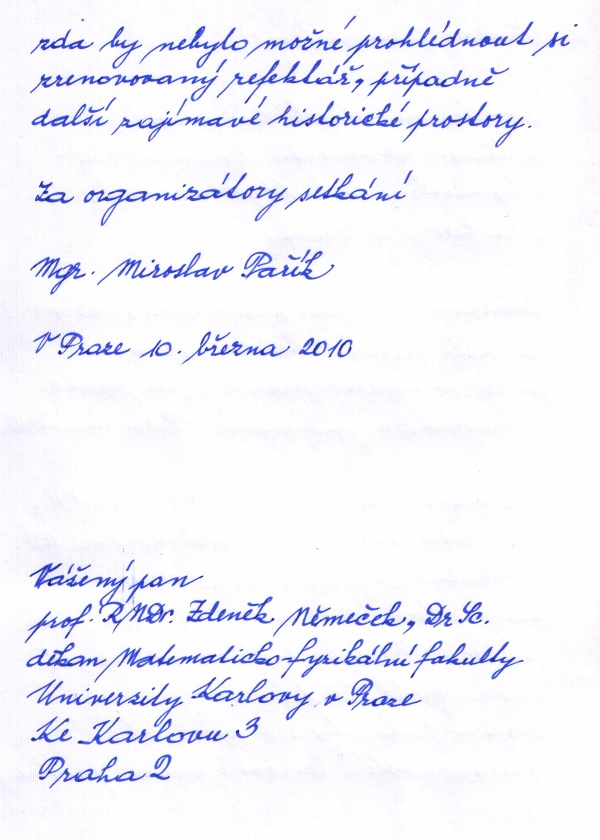 zda by nebylo možné prohlédnout si
zrenovovaný refektář, případně
další zajímavé historické prostory.
Za organizátory setkání
Mgr. Miroslav Pařík
V Praze 10. března 2010
Vážený pan
prof. RNDr. Zdeněk Němeček, DrSc.
děkan Matematicko-fyzikální fakulty
Univerzity Karlovy v Praze
Ke Karlovu 3
Praha 2